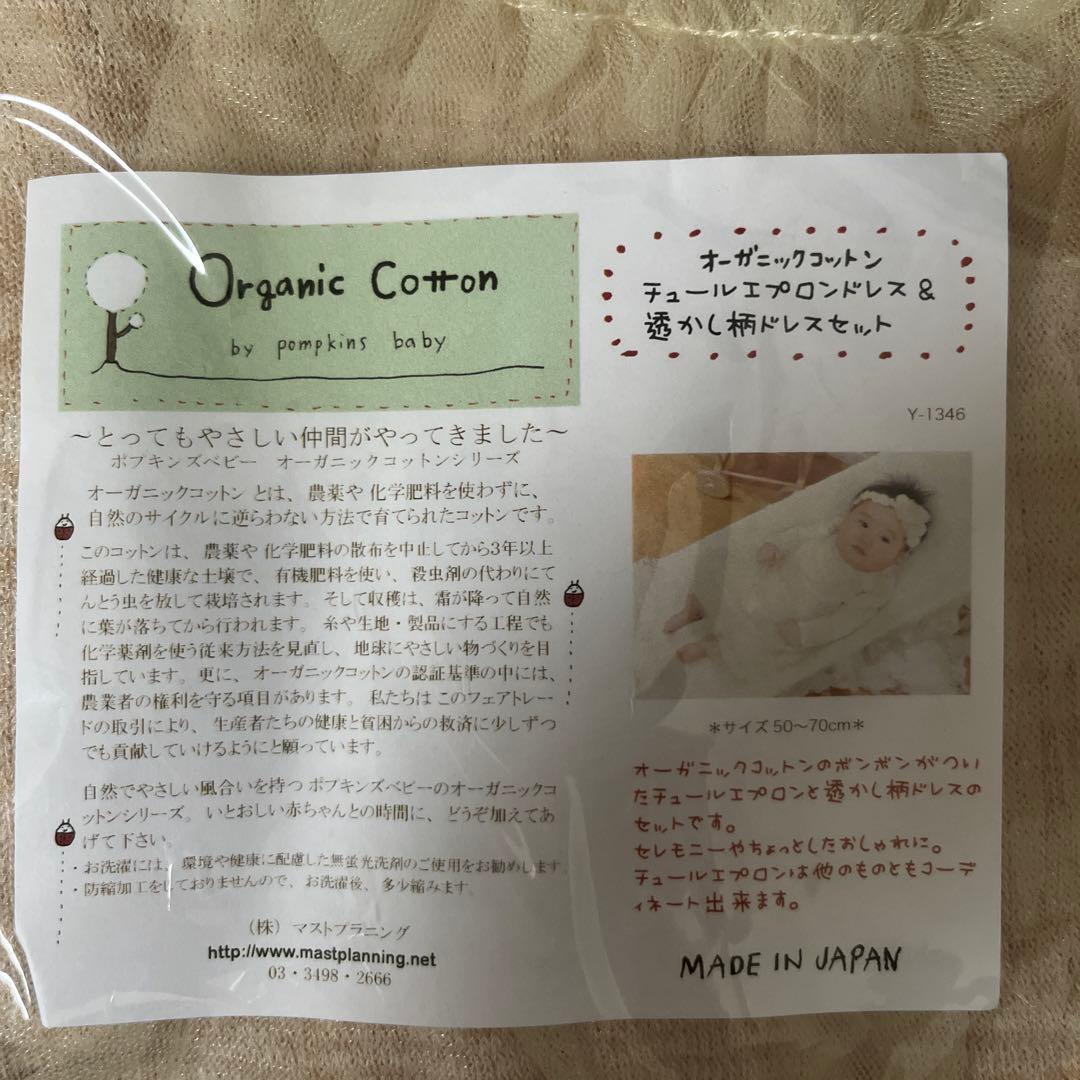 Organic Cotton
by pompkins baby
～とってもやさしい仲間がやってきました～
ポプキンズベビー オーガニックコットンシリーズ
オーガニックコットン とは、農薬や 化学肥料を使わずに、
自然のサイクルに逆らわない方法で育てられたコットンです。
このコットンは、農薬や 化学肥料の散布を中止してから3年以上
経過した健康な土壌で、有機肥料を使い、殺虫剤の代わりにて
んとう虫を放して栽培されます。そして収穫は、霜が降って自然
に葉が落ちてから行われます。糸や生地・製品にする工程でも
化学薬剤を使う従来方法を見直し、地球にやさしい物づくりを目
指しています。更に、オーガニックコットンの認証基準の中には、
農業者の権利を守る項目があります。私たちは このフェアトレー
ドの取引により、生産者たちの健康と貧困からの救済に少しずつ
でも貢献していけるようにと願っています。
自然でやさしい風合いを持つ ポプキンズベビーのオーガニックコ
ットンシリーズ。いとおしい赤ちゃんとの時間に、どうぞ加えてあ
げて下さい。
・お洗濯には、環境や健康に配慮した無蛍光洗剤のご使用をお勧めします
・防縮加工をしておりませんので、お洗濯後、多少縮みます。
（株）マストプラニング
http://www.mastplanning.net
03・3498・2666
オーガニックコットン
チュールエプロンドレス &
透かし柄ドレスセット
Y-1346
＊サイズ 50～70cm＊
オーガニックコットンのボンボンがつい
たチュールエプロンと透かし柄ドレスの
セットです。
セレモニーやちょっとしたおしゃれに。
チュールエプロンは他のものともコーデ
ィネート出来ます。
MADE IN JAPAN